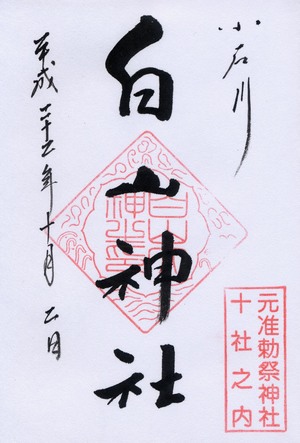 小石川
白山神社
平成二十二年十月二日
元准勅祭神社
十社之内